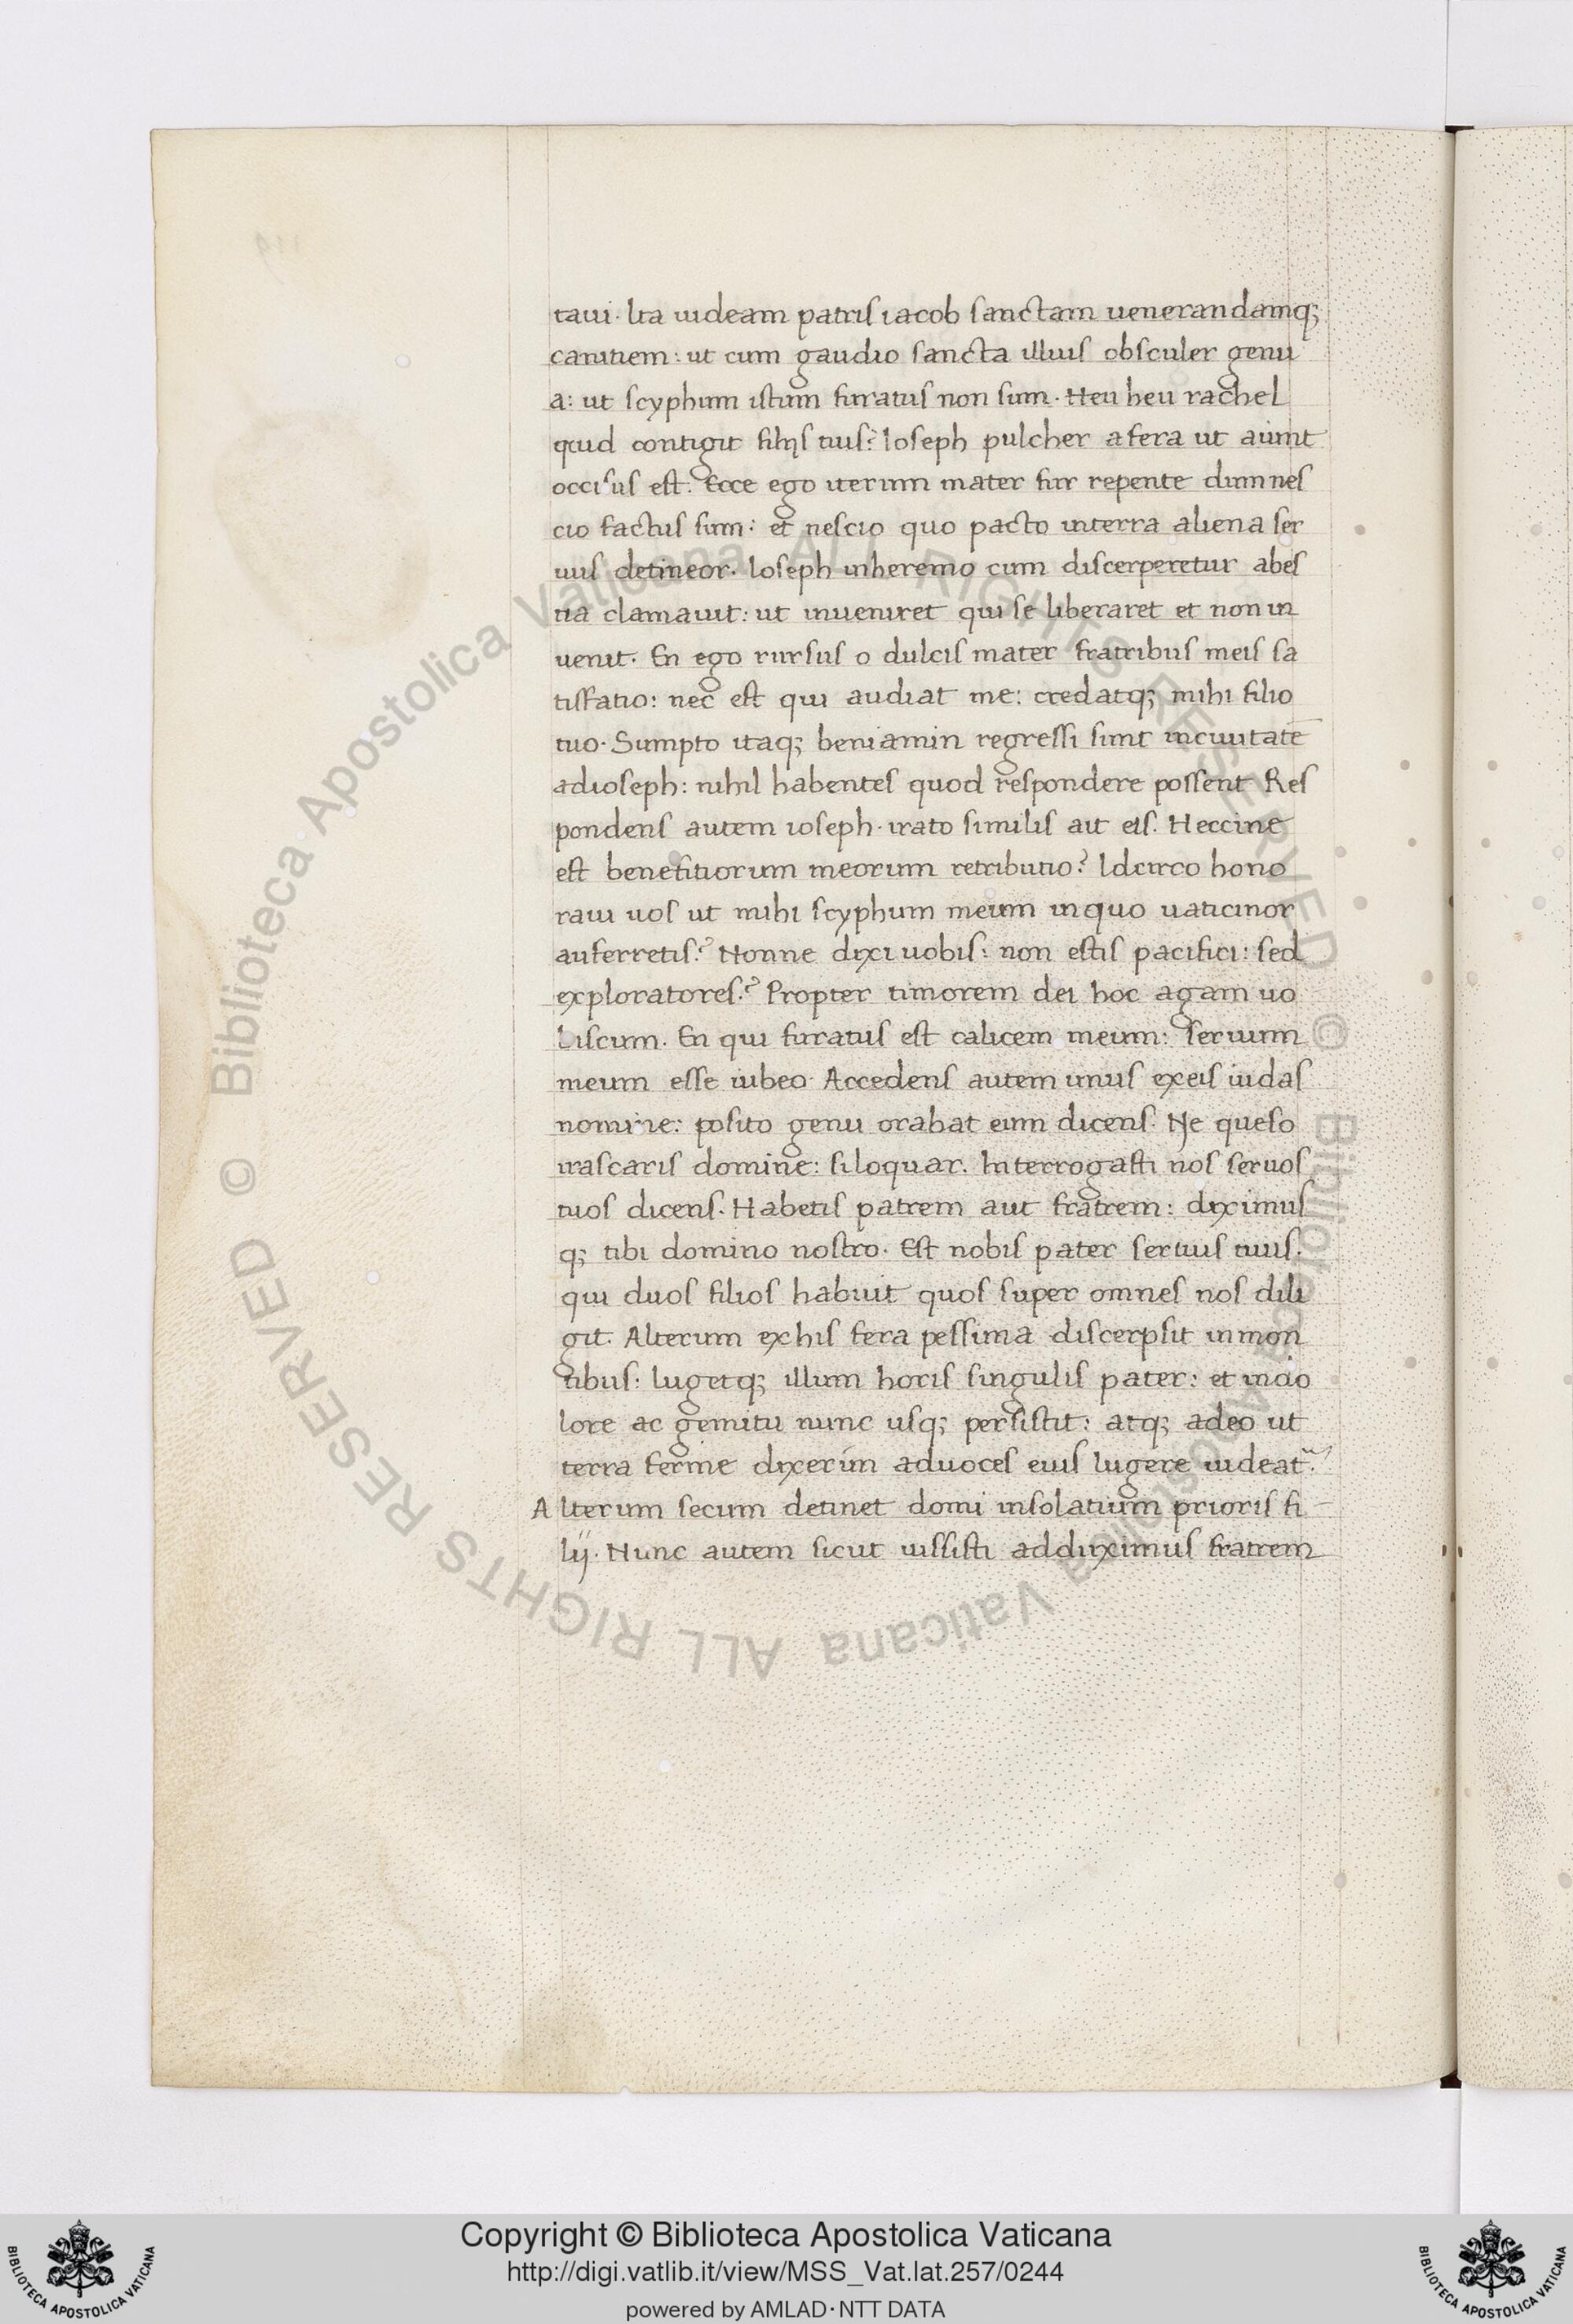 taui. Ita uideam patris iacob sanctam uenerandamq;
canitiem: ut cum gaudio sancta illius obsculer genu
a: ut scyphum istum furatus non sum. Heu heu rachel
quid contigit filijs tuis? Ioseph pulcher a fera ut aiunt
occisus est. Ecce ego iterum mater fur repente dum nes
cio factus sum: et nescio quo pacto interra aliena ser
uus detineor. Ioseph inheremo cum discerperetur abes
tia clamauit: ut inueniret qui se liberaret et non in
uenit. En ego rursus o dulcis mater fratribus meis sa
tisfatio: nec est qui audiat me: credatq; mihi filio
tuo. Sumpto itaq; beniamin regressi sunt inciuitatē
adioseph: nihil habentes quod respondere possent Res
pondens autem ioseph. irato similis ait eis. Heccine
est benefitiorum meorum retributio? Idcirco hono
raui uos ut mihi scyphum meum inquo uaticinor
auferretis? Nonne dixi uobis: non estis pacifici: sed
exploratores? Propter timorem dei hoc agam uo
biscum. En qui furatus est calicem meum: seruum
meum esse iubeo. Accedens autem unus exeis iudas
nomine: posito genu orabat eum dicens. Ne queso
irascaris domine: siloquar. Interrogasti nos seruos
tuos dicens. Habetis patrem aut fratrem: diximus
q; tibi domino nostro. Est nobis pater seruus tuus.
qui duos filios habuit quos super omnes nos dili
git. Alterum exhis fera pessima discerpsit inmon
tibus: lugetq; illum horis singulis pater: et indo
lore ac gemitu nunc usq; persistit: atq; adeo ut
terra ferme dixerim aduoces eius lugere uideat.
Alterum secum detinet domi insolatium prioris fi
lij. Nunc autem sicut iussisti adduximus fratrem
Copyright © Biblioteca Apostolica Vaticana
http://digi.vatlib.it/view/MSS_Vat.lat.257/0244
powered by AMLAD·NTT DATA
BIBLIOTECA APOSTOLICA VATICANA
BIBLIOTECA APOSTOLICA VATICANA
© Biblioteca Apostolica Vaticana ALL RIGHTS RESERVED © Biblioteca Apostolica Vaticana ALL RIGHTS RESERVED